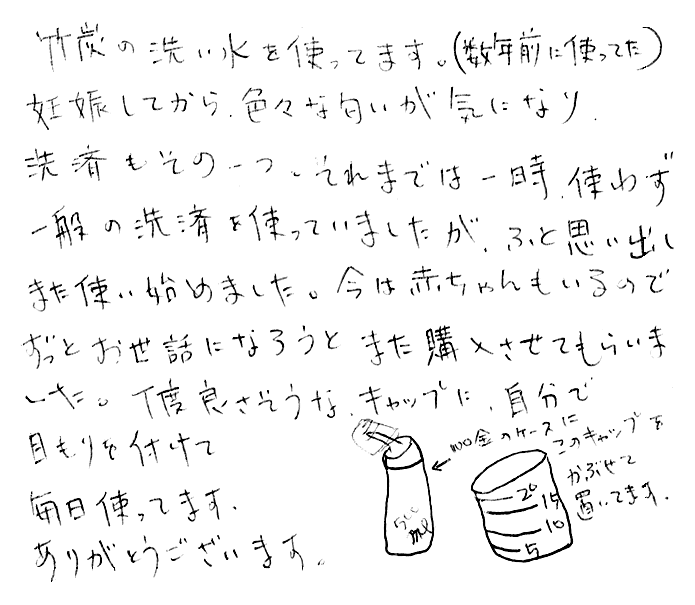 竹炭の洗い水を使ってます。(数年前に使ってた)
妊娠してから、色々な匂いが気になり、
洗済もその一つ、それまでは一時、使わず
一般の洗済を使っていましたが、ふと思い出し
また使い始めました。今は赤ちゃんもいるので
ずっとお世話になろうとまた購入させてもらいま
した。丁度良さそうな、キャップに、自分で
目もりを付けて
毎日使ってます。
ありがとうございます。
100金のケースに
このキャップを
かぶせて
置いてます。
500
ml
20
15
10
5